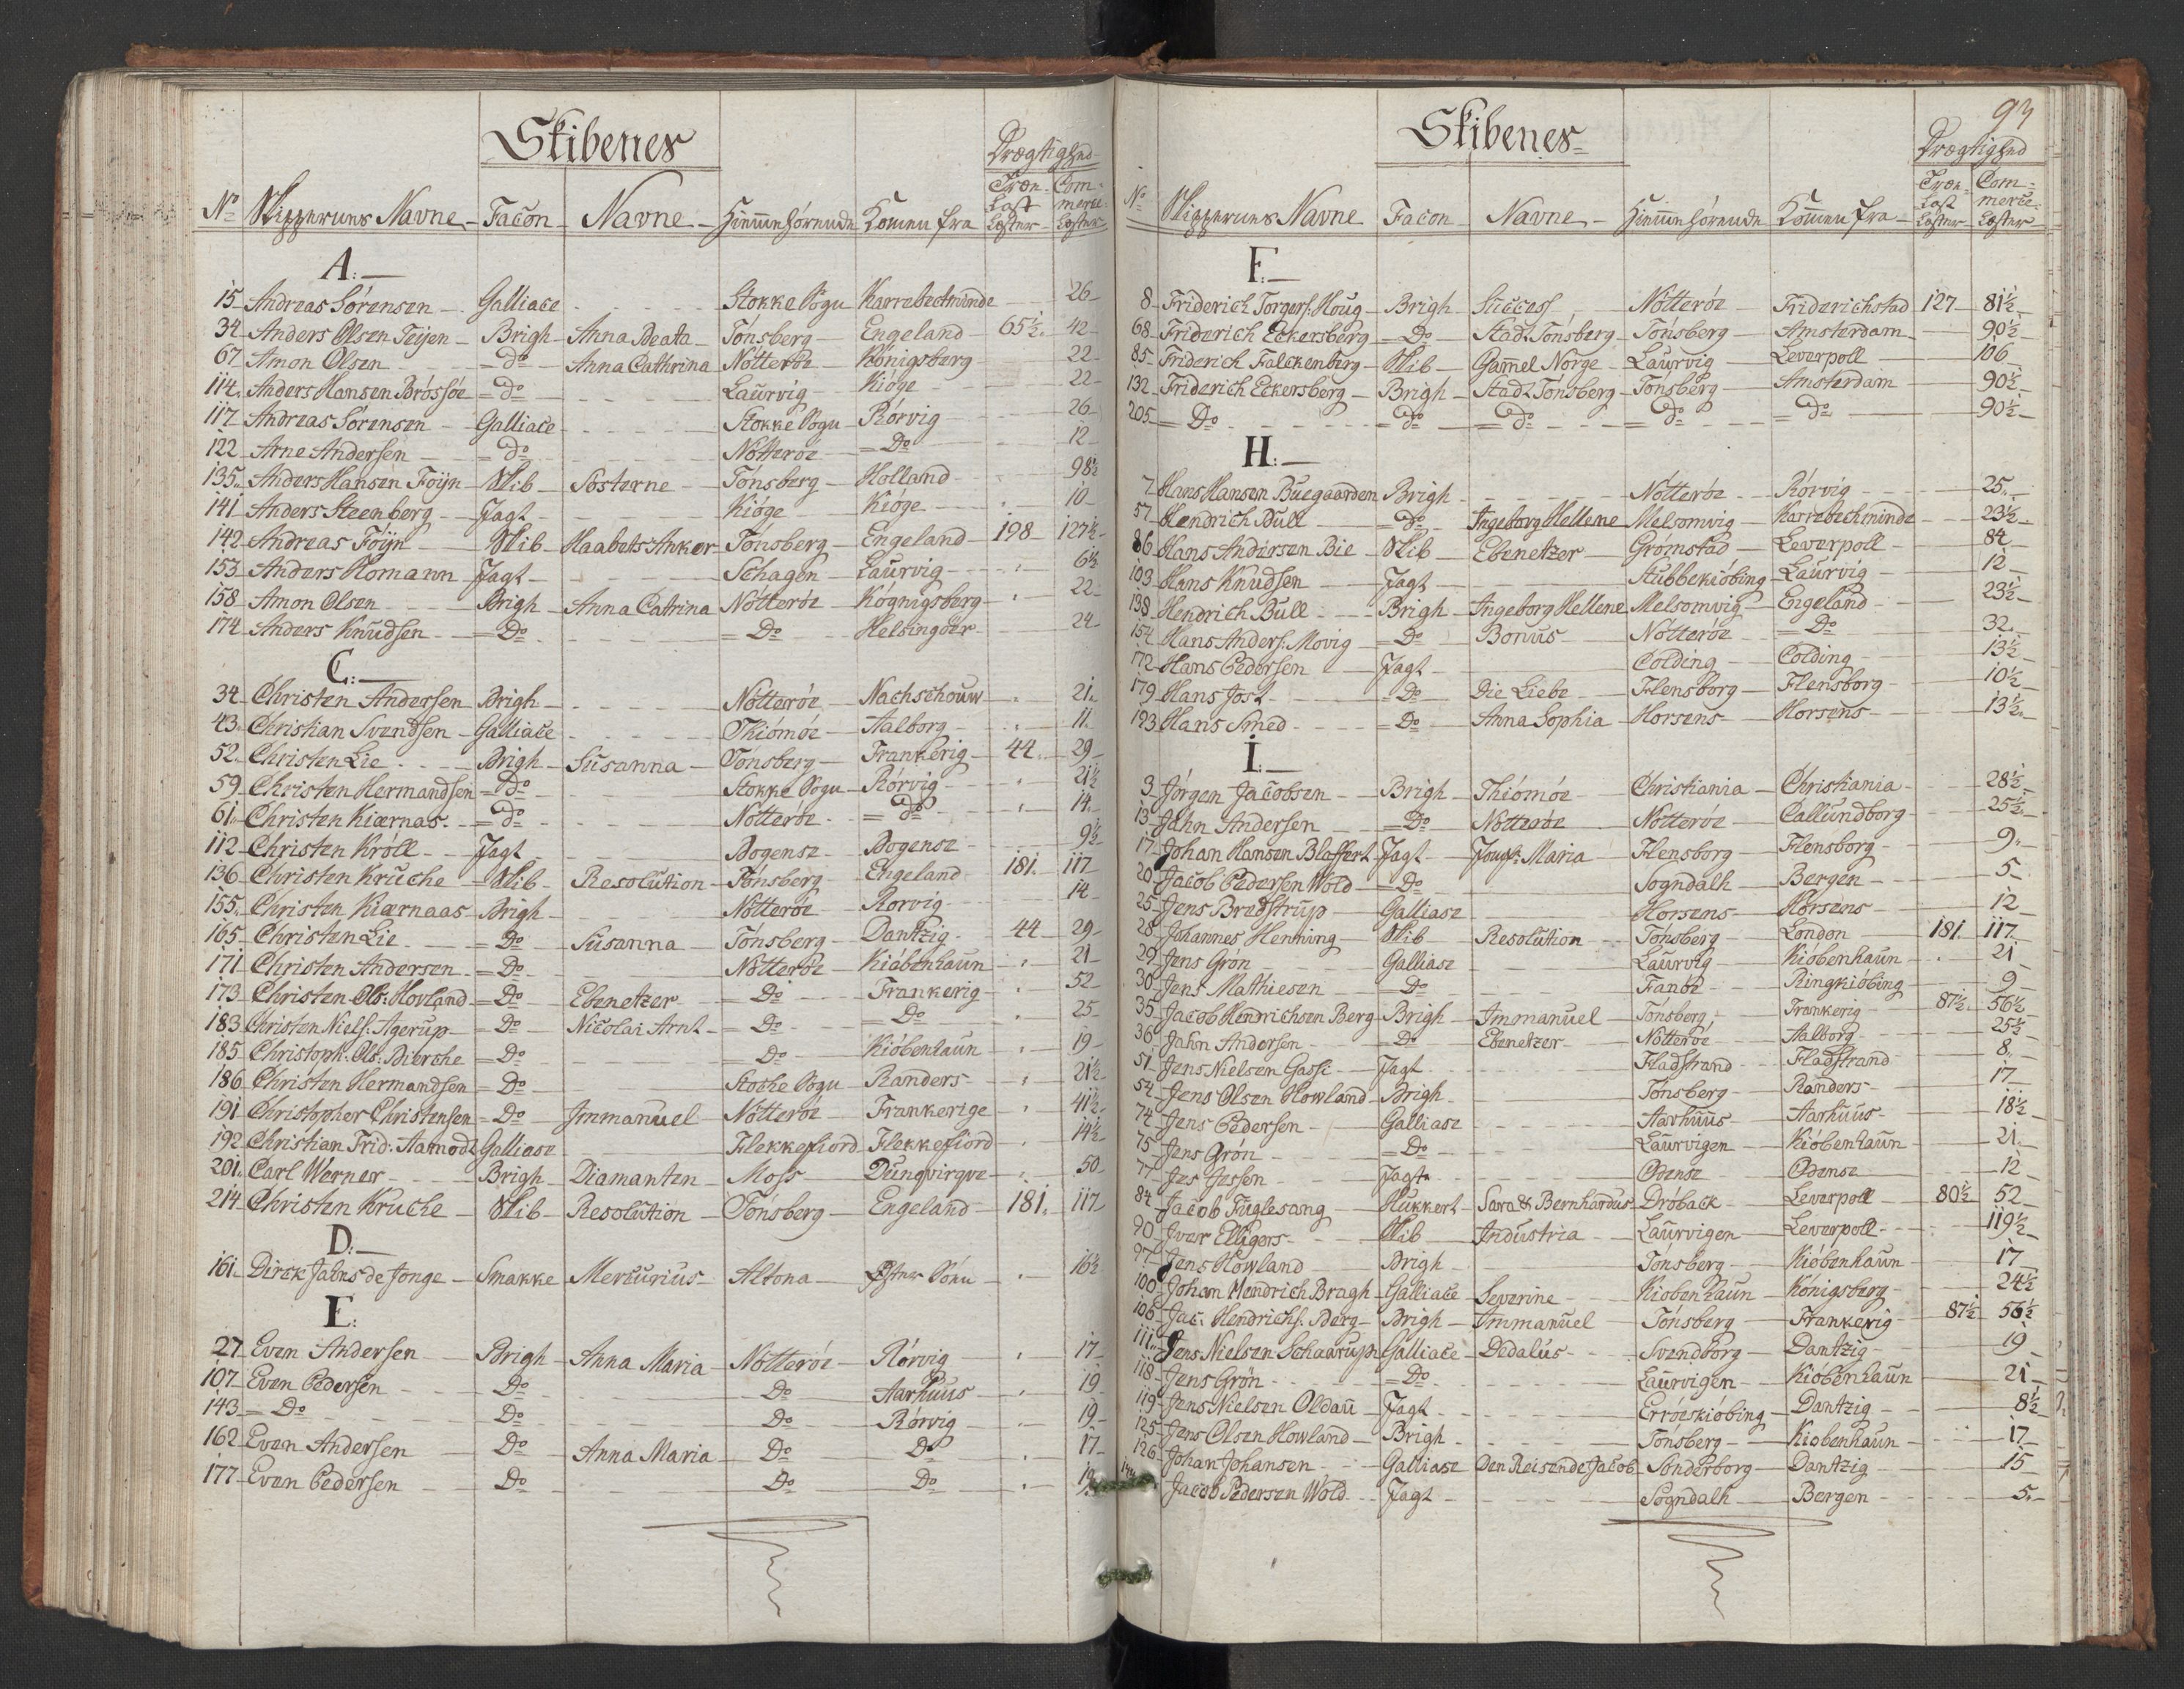 Skibenes
Drægtighed
No Skippernes Navne Facon Navne Hiemmehörende Komen fra Træ-Last Læster Commerce Læster
A:
15 Andreas Sörensen Galliace Stokke Sogn Karrebechminde 26
34 Anders Olsen Teijen Brigh Anna Beata Tönsberg Engeland 65½ 42
67 Amon Olsen Do Anna Cathrina Nötteröe Königsberg 22
114 Anders Hansen Brössöe Do Laurvig Kiöge 22
117 Andreas Sörensen Galliace Stokke Sogn Rörvig 26
122 Arne Andersen Do Nötteröe Do 12
135 Anders Hansen Föyn Skib Sösterne Tönsberg Holland 98½
141 Anders Steenberg Jagt Kiöge Kiöge 10
142 Andreas Föijn Skib Haabets Anker Tönsberg Engeland 198 127½
153 Anders Homann Jagt Schagen Laurvig 6½
158 Amon Olsen Brigh Anna Catrina Nötteröe Kögnigsberg 22
174 Anders Knudsen Do Do Helsingöer 24
C:
34 Christen Andersen Brigh Nötteröe Nachschouw 21
43 Christian Svendsen Galliace Thiömöe Aalborg 11
52 Christen Lie Brigh Susanna Tönsberg Frankerig 44 29
59 Christen Hermandsen Do Stokke Sogn Rörvig 21½
61 Christen Kiærnas Do Nötteröe Do 14
112 Christen Kröll Jagt Bogense Bogense 9½
136 Christen Kruche Skib Resolution Tönsberg Engeland 181 117
155 Christen Kiærnaas Brigh Nötteröe Rörvig 14
165 Christen Lie Do Susanna Tönsberg Dantzig 44 29
171 Christen Andersen Do Nötteröe Kiöbenhaun 21
173 Christen Ols: Hovland Do Ebenetzer Do Frankerig 52
183 Christen Niels: Agerup Do Nicolai Arnt Do Do 25
185 Christoph: Ols: Bierche Do Do Kiöbenhaun 19
186 Christen Hermandsen Do Stoche Sogn Randers 21½
191 Christopher Christensen Do Immanuel Nötteröe Frankerige 41½
192 Christian Frid: Aamodt Galliase Flekkefiord Flekkefiord 14½
201 Carl Werner Brigh Diamanten Moss Dunqvirqve 50
214 Christen Kruche Skib Resolution Tönsberg Engeland 181 117
D:
161 Dirck Jahns de Jonge Smakke Mercurius Altona 16½
E:
27 Even Andersen Brigh Anna Maria Nötteröe Rörvig 17
107 Even Pedersen Do Do Aarhuus 19
143 Do Do Do Rörvig 19
162 Even Andersen Do Anna Maria Do Do 17
177 Even Pedersen Do Do Do 19
93
Skibenes
Drægtighed
No Skippernes Navne Facon Navne Hiemmehörende Komen fra Træ-Last Læster Commerce Læster
F:
8 Friderich Torgers: Houg Brigh Success Nötteröe Friderichstad 127 81½
68 Friderich Eckersberg Do Stadt Tönsberg Tönsberg Amsterdam 90½
85 Friderich Falckenberg Skib Gamel Norge Laurvig Leverpoll 106
132 Friderich Eckersberg Brigh Stadt Tönsberg Tönsberg Amsterdam 90½
205 Do Do Do Do Do 90½
H:
7 Hans Hansen Buegaarden Brigh Nötteröe Rörvig 25
57 Hendrich Bull Do Ingeborg Hellene Melsomvig Karrebechminde 23½
86 Hans Andersen Bie Skib Ebenetzer Grömstad Leverpoll 84
103 Hans Knudsen Jagt Stubbekiöbing Laurvig 12
138 Hendrich Bull Brigh Ingeborg Hellene Melsomvig Engeland 23½
154 Hans Anders: Movig Do Bonus Nötteröe Do 32
172 Hans Pedersen Jagt Colding Colding 13½
179 Hans Jost Do Die Liebe Flensborg Flensborg 10½
193 Hans Smed Do Anna Sophia Horsens Horsens 13½
I:
3 Jörgen Jacobsen Brigh Thiömöe Christiania Christiania 28½
13 Jahn Andersen Do Nötteröe Nötteröe Callundborg 25½
17 Johan Hansen Blaffert Jagt Jomfr: Maria Flensborg Flensborg 9
20 Jacob Pedersen Wold Do Sogndalh Bergen 5
25 Jens Bredstrup Galliase Horsens Horsens 12
28 Johannes Henning Skib Resolution Tönsberg London 181 117
29 Jens Grön Galliase Laurvig Kiöbenhaun 21
30 Jens Mathiesen Do Fanöe Ringkiöbing 9
35 Jacob Henrichsen Berg Brigh Immanuel Tönsberg Frankerig 87½ 56½
36 Jahn Andersen Do Ebenetzer Nötteröe Aalborg 25½
51 Jens Nielsen Gassi Jagt Fladstrand Fladstrand 8
54 Jens Olsen Howland Brigh Tönsberg Randers 17
74 Jens Pedersen Galliase Aarhuus Aarhuus 18½
75 Jens Grön Do Laurvigen Kiöbenhaun 21
77 Jes Jessen Jagt Odense Odense 12
84 Jacob Fuglesang Hukkert Sara & Bernhardus Dröback Leverpoll 80½ 52
90 Iver Elligers Skib Industria Laurvigen Leverpoll 119½
97 Jens Howland Brigh Tönsberg Kiöbenhaun 17
100 Johan Hendrich Bragh Galliace Severine Kiöbenhaun Königsberg 24½
106 Jac: Hendrichs: Berg Brigh Immanuel Tönsberg Frankerig 87½ 56½
111 Jens Nielsen Schaarup Galliace Dedalus Svendborg Dantzig 19
118 Jens Grön Do Laurvigen Kiöbenhaun 21
119 Jens Nielsen Oldau Jagt Erröeskiöbing Dantzig 8½
125 Jens Olsen Howland Brigh Tönsberg Kiöbenhaun 17
126 Johan Johansen Galliase Den Reisende Jacob Sönderborg Dantzig 15
Jacob Pedersen Wold Jagt Sogndalh Bergen 5